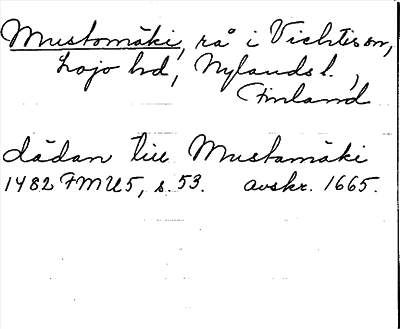 Mustomäki, rå i Vichtis sn,
Lojo hd, Nylands l.,
Finland
dädan till Mustamäki
1482 FMU5, s. 53. avskr. 1665.